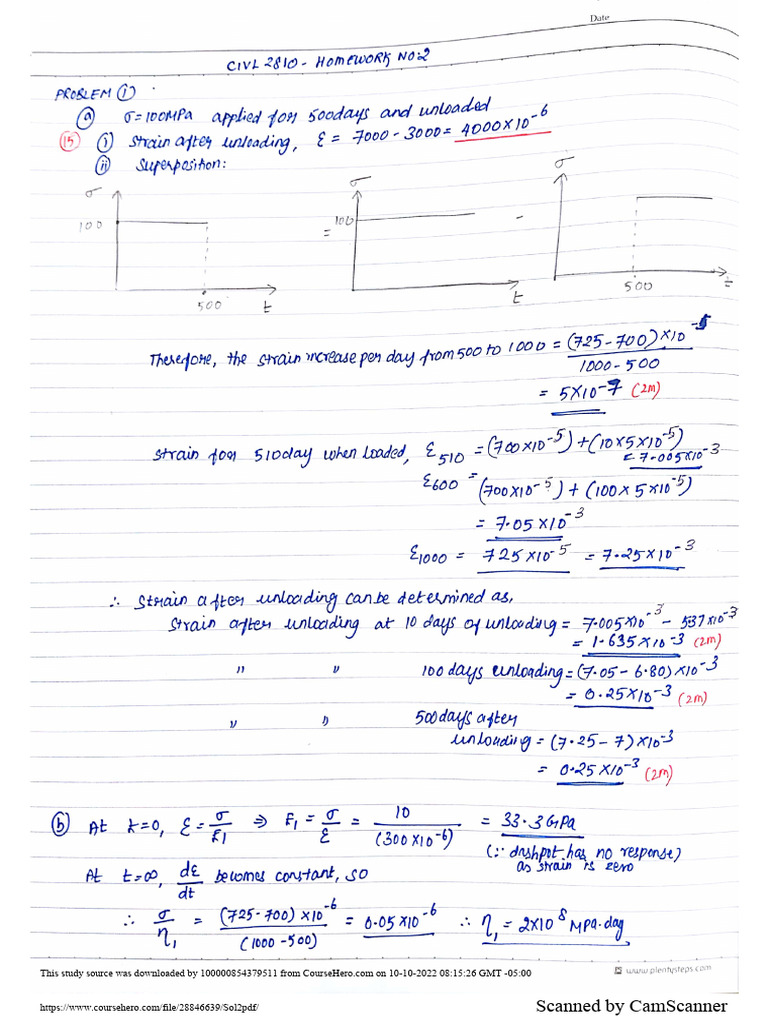 Date
CIVL 2810 - HOMEWORK NO:2
PROBLEM ①
ⓐ σ=100MPa applied for 500days and unloaded
15 ⓘ Strain after unloading, ε = 7000 - 3000 = 4000×10⁻⁶
ⓘⓘ Superposition:
σ σ σ
100 = 100 -
500 t t 500 t
Therefore, the strain increase per day from 500 to 1000 = (725-700)×10⁻⁵
1000-500
= 5×10⁻⁷ (2m)
Strain for 510day when loaded, ε₅₁₀ = (700×10⁻⁵) + (10×5×10⁻⁵)
= 7.005×10⁻³
ε₆₀₀ = (700×10⁻⁵) + (100×5×10⁻⁵)
= 7.05×10⁻³
ε₁₀₀₀ = 725×10⁻⁵ = 7.25×10⁻³
∴ Strain after unloading can be determined as,
Strain after unloading at 10 days of unloading = 7.005×10⁻³ - 537×10⁻³
= 1.635×10⁻³ (2m)
" " 100 days unloading = (7.05-6.80)×10⁻³
= 0.25×10⁻³ (2m)
" " 500 days after
unloading = (7.25-7)×10⁻³
= 0.25×10⁻³ (2m)
ⓑ At t=0, ε = σ/E₁ ⇒ E₁ = σ/ε = 10/(300×10⁻⁶) = 33.3GPa
(∵ dashpot has no response)
as strain is zero
At t=∞, dε/dt becomes constant, so
∴ σ/η₁ = (725-700)×10⁻⁶/(1000-500) = 0.05×10⁻⁶ ∴ η₁ = 2×10⁸ MPa.day
This study source was downloaded by 100000854379511 from CourseHero.com on 10-10-2022 08:15:26 GMT -05:00
www.plentysteps.com
https://www.coursehero.com/file/28846639/Sol2pdf/
Scanned by CamScanner